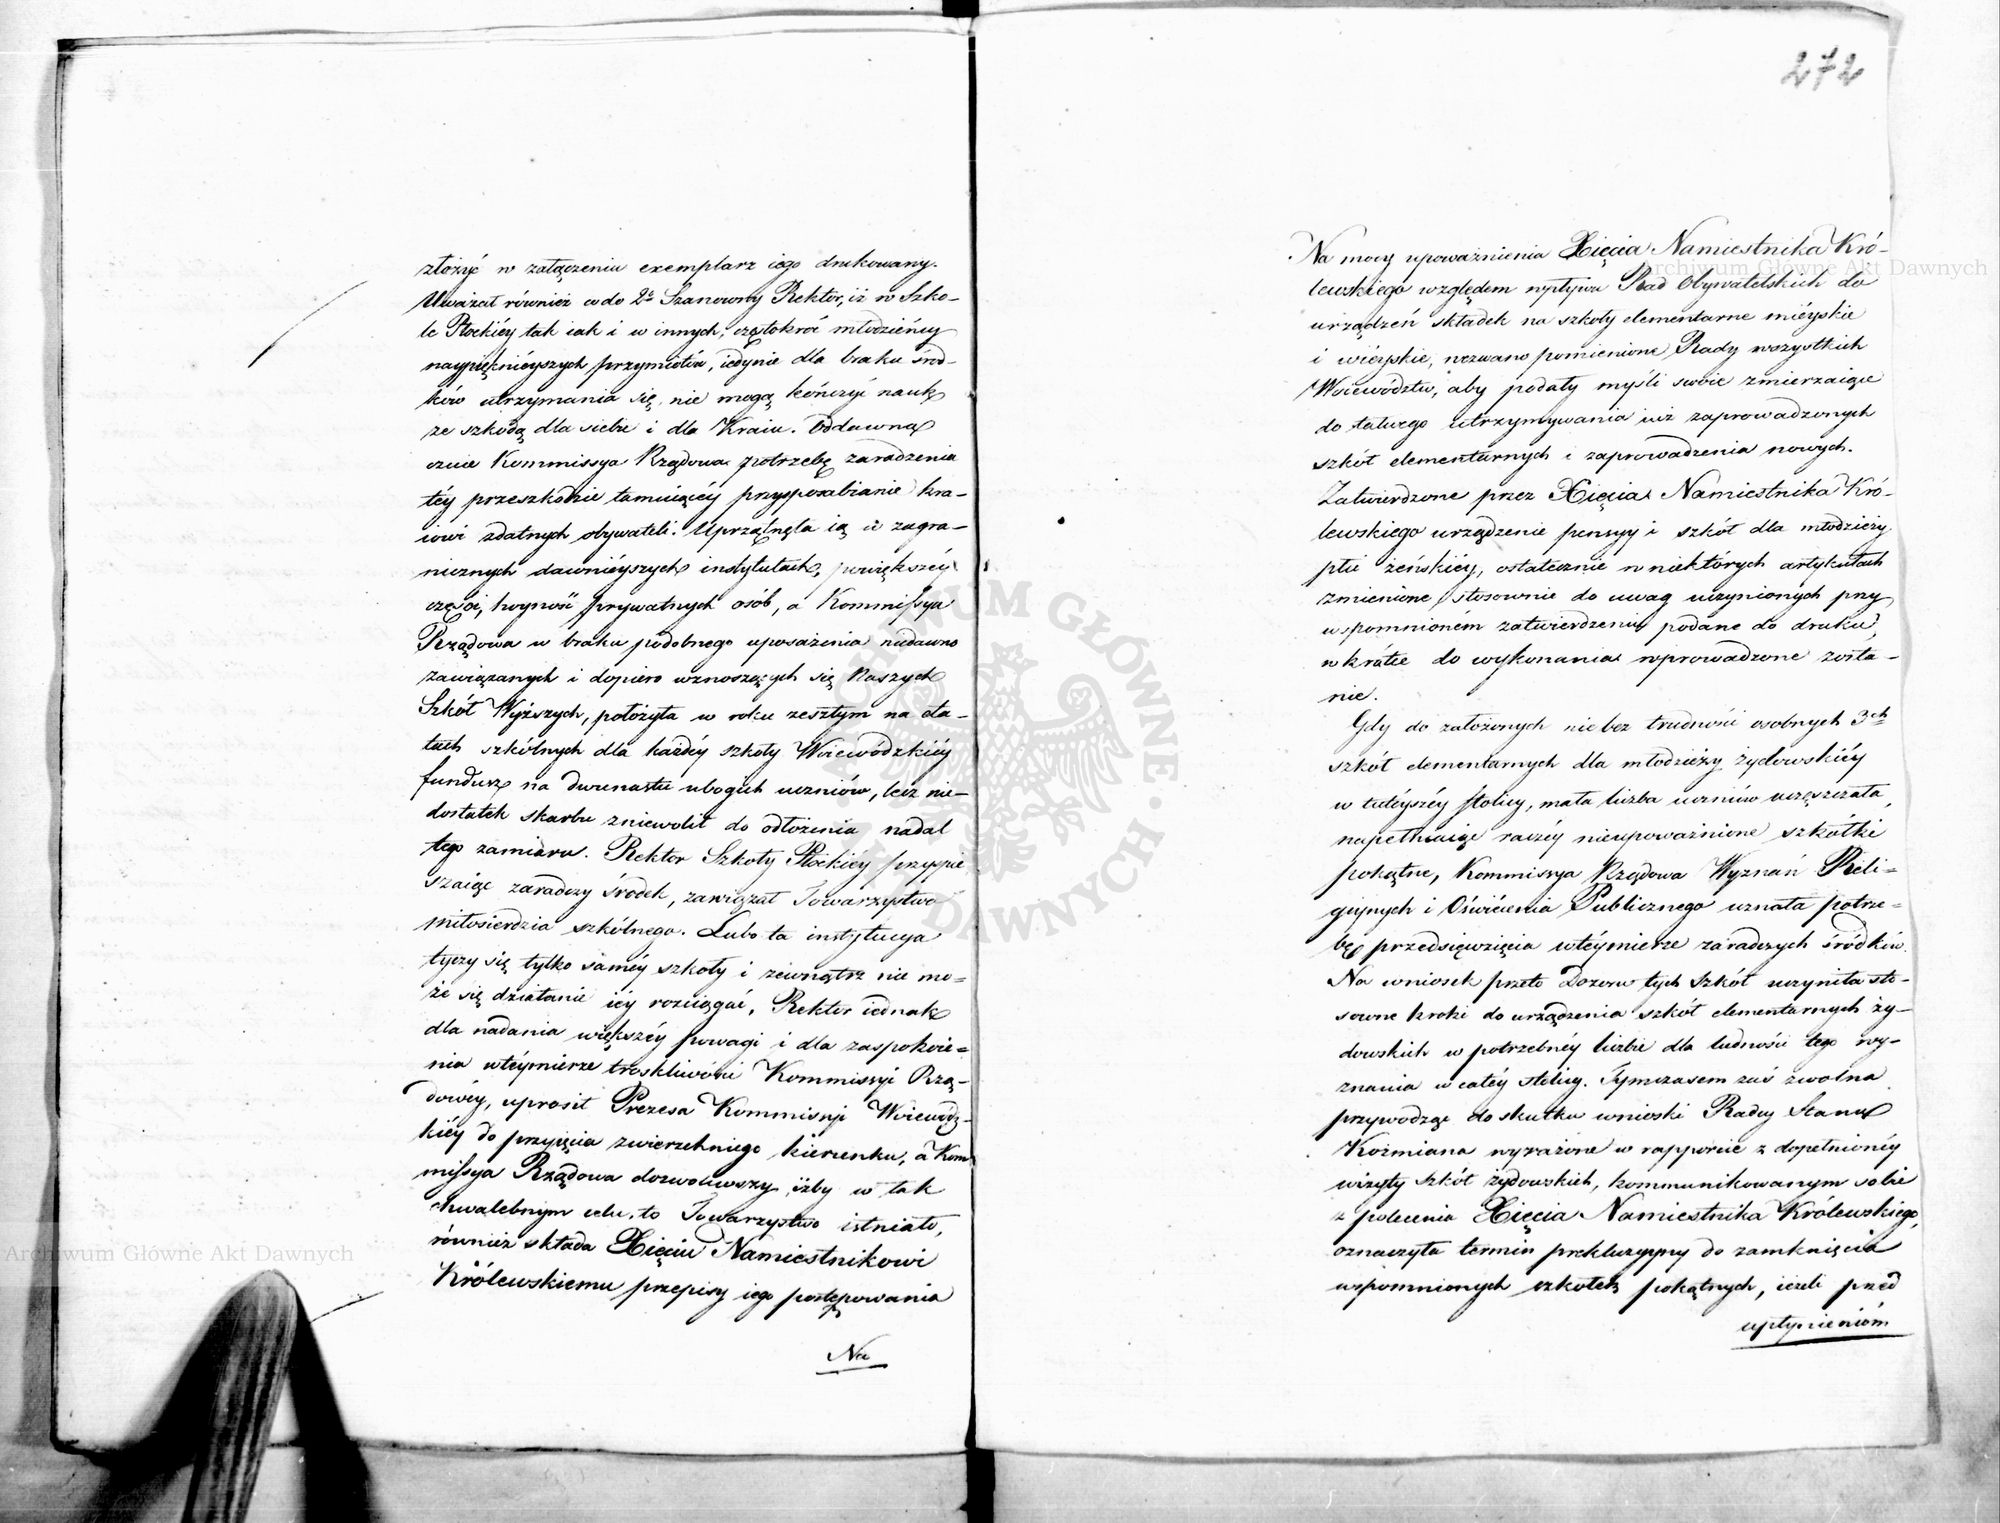 złożyć w załączeniu exemplarz iego drukowany.
Uważał również co do 2º Szanowny Rektor, iż w Szko-
le Płockiéy tak iak i w innych, częstokroć młodzieńcy
naypięknieyszych przymiotów, iedynie dla braku środ-
ków utrzymania się, nie mogą kończyć naukę
ze szkodą dla siebie i dla Kraiu. Oddawna
czuie Kommissya Rządowa potrzebę zaradzenia
téy przeszkodzie tamuiącéy przysposabianie kra-
iowi zdatnych obywateli. Uprzątnęła ią w zagra-
nicznych dawniéyszych instytutach, powiększéy
części, hoyność prywatnych osób, a Kommissya
Rządowa w braku podobnego uposażenia niedawno
zawiązanych i dopiero wznoszących się Naszych
Szkół Wyższych, położyła w roku zeszłym na eta-
tach szkólnych dla każdéy szkoły Woiewódzkiéy
fundusz na dwunastu ubogich uczniów, lecz nie-
dostatek skarbu zniewolił do odłożenia nadal
tego zamiaru. Rektor Szkoły Płockiéy przyspie
szaiąc zaradczy środek, zawiązał Towarzystwo
miłosierdzia szkólnego. Lubo ta instytucya
tyczy się tylko saméy szkoły i zewnątrz nie mo-
że się działanie iéy rozciągać, Rektor iednak
dla nadania większéy powagi i dla zaspokoie-
nia wtéymierze troskliwości Kommissyi Rzą-
dowéy, uprosił Prezesa Kommissyi Woiewódz-
kiéy do przyięcia zwierzchniego kierunku, a Kom
missya Rządowa dozwoliwszy, iżby w tak
chwalebnym celu, to Towarzystwo istniało,
również składa Xięciu Namiestnikowi
Królewskiemu przepisy iego postępowania
Na
272
Na mocy upoważnienia Xięcia Namiestnika Kró-
lewskiego względem wpływu Rad Obywatelskich do
urządzeń składek na szkoły elementarne miéyskie
i wieyskie, wezwano pomienione Rady wszystkich
Woiewództw, aby podały myśli swoie zmierzaiące
do łatwego utrzymywania iuż zaprowadzonych
szkół elementarnych i zaprowadzenia nowych.
Zatwierdzone przez Xięcia Namiestnika Kró-
lewskiego urządzenie pensyy i szkół dla młodzieży
płci żeńskiéy, ostatecznie w niektórych artykułach
zmienione stosownie do uwag uczynionych przy
wspomnioném zatwierdzeniu podane do druku,
wkrótce do wykonania wprowadzone zosta-
nie.
Gdy do założonych nie bez trudności osobnych 3ch
szkół elementarnych dla młodzieży żydowskiéy
w tuteyszéy stolicy, mała liczba uczniów uczęszczała,
napełniaiąc raczéy nieupoważnione szkółki
pokątne, Kommissya Rządowa Wyznań Reli-
giynych i Oświécenia Publicznego uznała potrze-
bę przedsięwzięcia wtéymierze zaradczych śródków.
Na wniosek przeto Dozoru tych Szkół uczyniła sto-
sowne kroki do urządzenia szkół elementarnych ży-
dowskich w potrzebnéy liczbie dla ludności tego wy-
znania w całéy stolicy. Tymczasem zaś zwolna
przywodząc do skutku wnioski Radcy Stanu
Koźmiana wyrażone w rapporcie z dopełnionéy
wizyty szkół żydowskich, kommunikowanym sobie
z polecenia Xięcia Namiestnika Królewskiego,
oznaczyła termin prekluzyyny do zamknięcia
wspomnionych szkółek pokątnych, ieżeli przed
upłynieniém
Archiwum Główne Akt Dawnych
Archiwum Główne Akt Dawnych
ARCHIWUM GŁÓWNE · AKT DAWNYCH ·